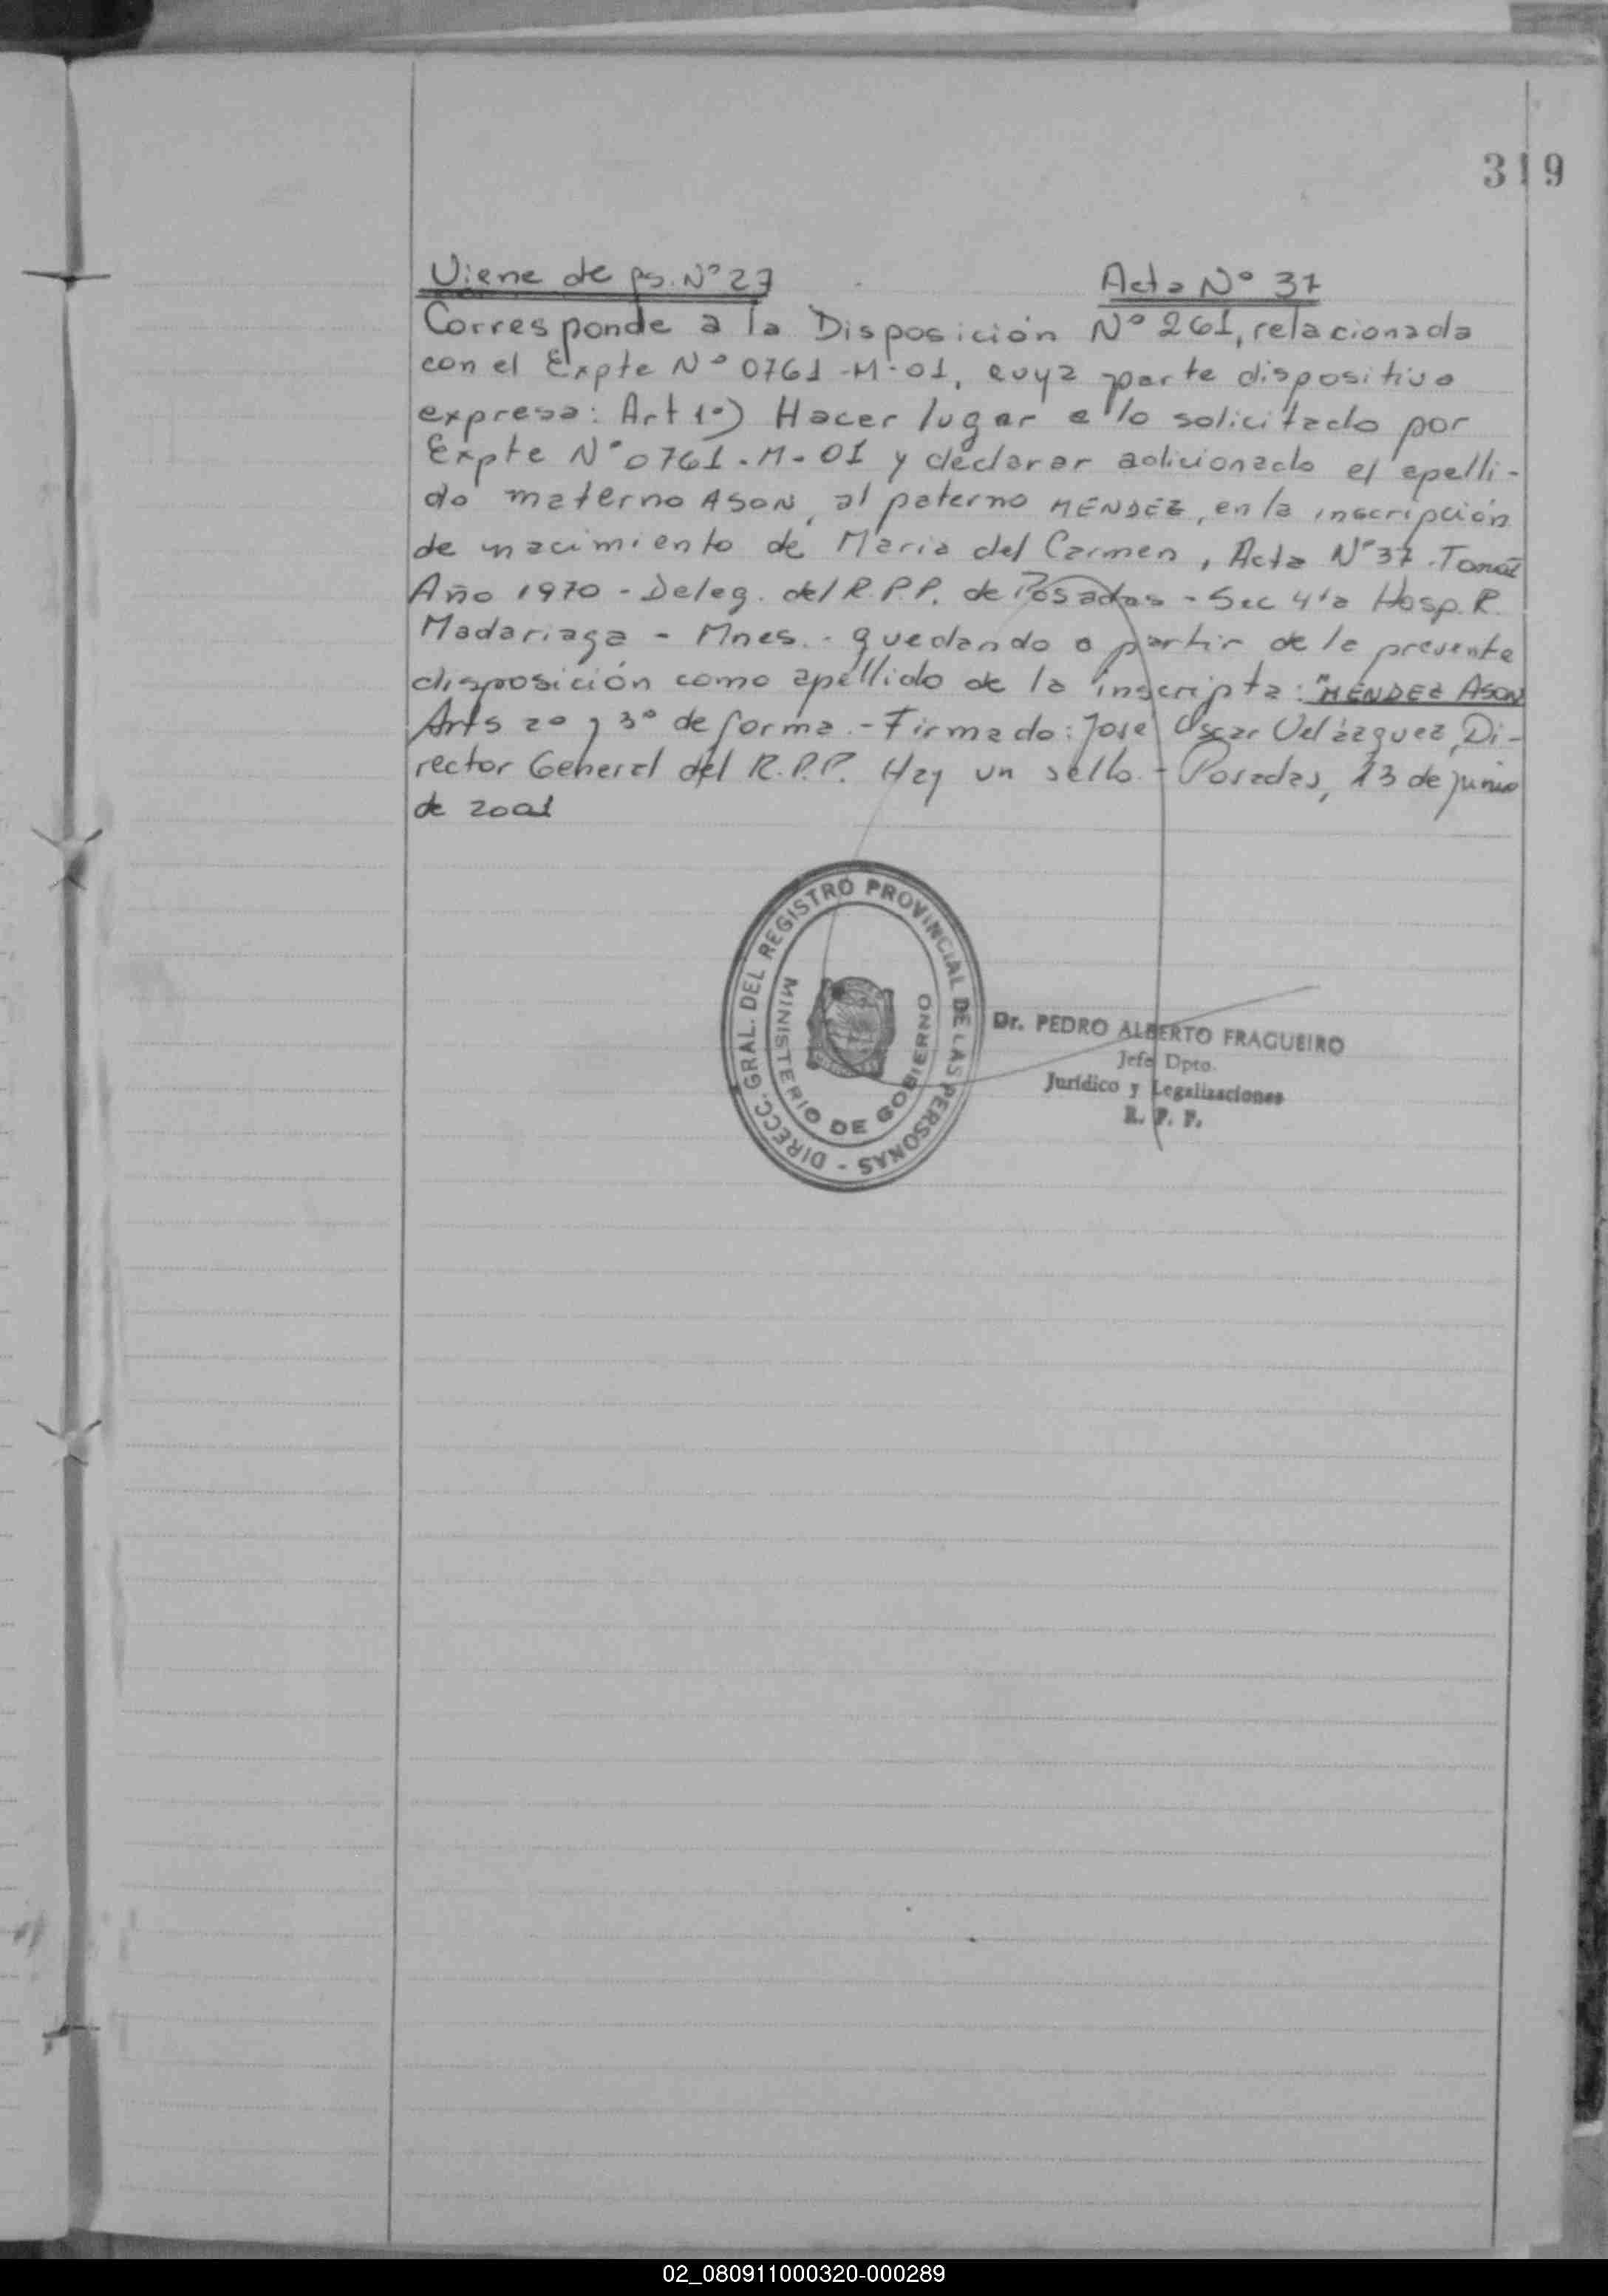 319
Viene de pg. Nº 27
Acta Nº 37
Corresponde a la Disposición Nº 261, relacionada
con el Expte Nº 0761-M-01, cuya parte dispositiva
expresa: Art 1º) Hacer lugar a lo solicitado por
Expte Nº 0761-M-01 y declarar adicionado el apelli-
do materno ASON, al paterno MENDEZ, en la inscripción
de nacimiento de Maria del Carmen, Acta Nº 37.
Año 1970 - Deleg. del R.P.P. de Posadas - Sec 4ta Hosp. R.
Madariaga - Mnes. - quedando a partir de la presente
disposición como apellido de la inscripta: "MÉNDEZ ASON
Arts 2º y 3º de forma. - Firmado: José Oscar Velázquez, Di-
rector General del R.P.P. Hay un sello. - Posadas, 13 de junio
de 2001
DIRECC. GRAL. DEL REGISTRO PROVINCIAL DE LAS PERSONAS -
MINISTERIO DE GOBIERNO
Dr. PEDRO ALBERTO FRAGUEIRO
Jefe Dpto.
Jurídico y Legalizaciones
R. P. P.
02_080911000320-000289